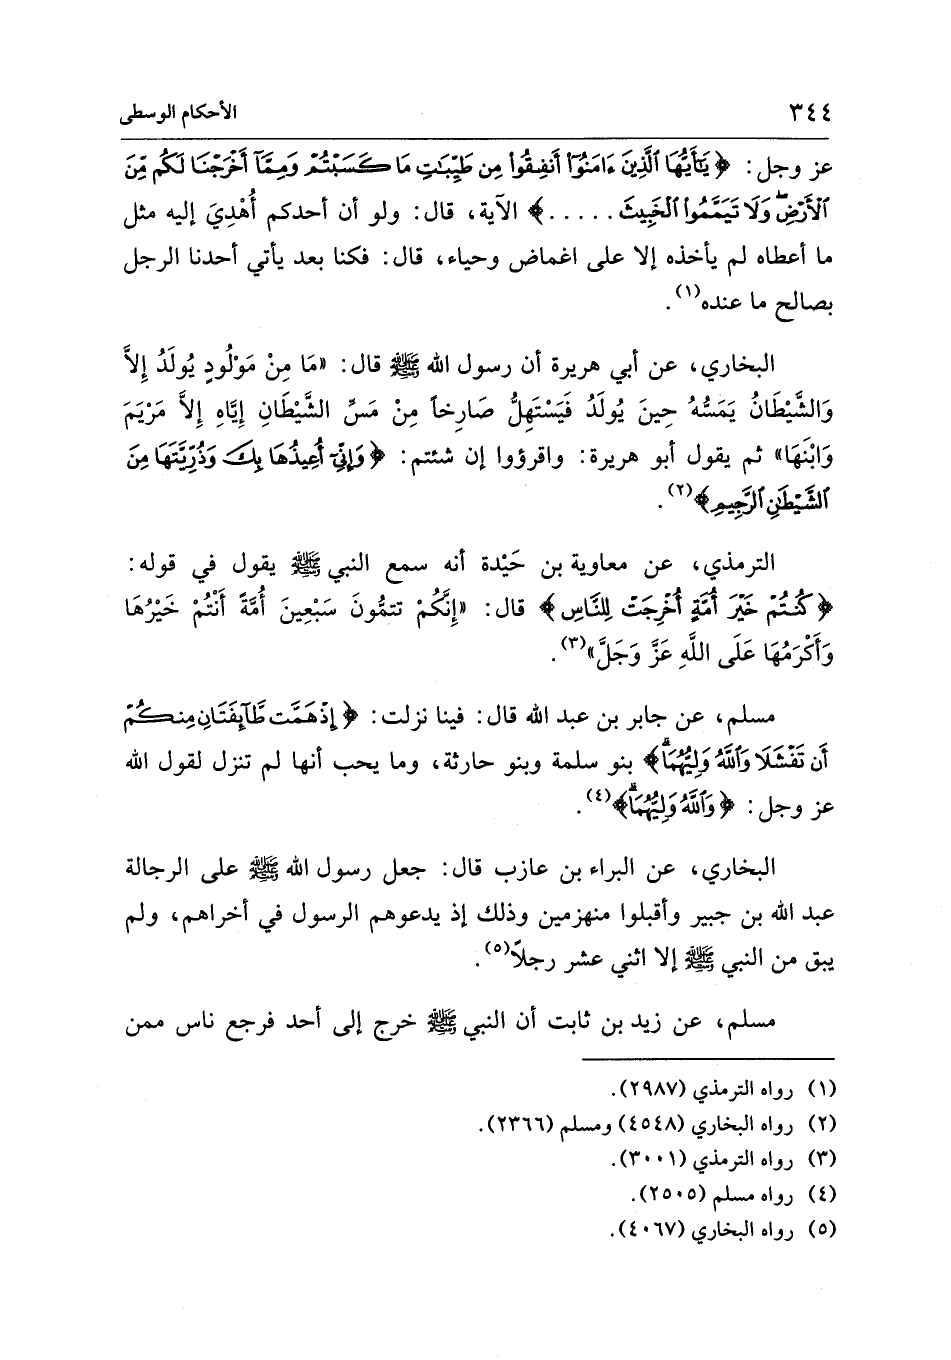 ٣٤٤ الأحكام الوسطى
عز وجل: ﴿يَٰٓأَيُّهَا ٱلَّذِينَ ءَامَنُوٓا۟ أَنفِقُوا۟ مِن طَيِّبَٰتِ مَا كَسَبْتُمْ وَمِمَّآ أَخْرَجْنَا لَكُم مِّنَ
ٱلْأَرْضِ ۖ وَلَا تَيَمَّمُوا۟ ٱلْخَبِيثَ .....﴾ الآية، قال: ولو أن أحدكم أُهْدِيَ إليه مثل
ما أعطاه لم يأخذه إلا على اغماض وحياء، قال: فكنا بعد يأتي أحدنا الرجل
بصالح ما عنده(١).
البخاري، عن أبي هريرة أن رسول الله ﷺ قال: «مَا مِنْ مَوْلُودٍ يُولَدُ إِلاَّ
وَالشَّيْطَانُ يَمَسُّهُ حِينَ يُولَدُ فَيَسْتَهِلُّ صَارِخاً مِنْ مَسِّ الشَّيْطَانِ إِيَّاهِ إِلاَّ مَرْيَمَ
وَابْنَهَا» ثم يقول أبو هريرة: واقرؤوا إن شئتم: ﴿وَإِنِّىٓ أُعِيذُهَا بِكَ وَذُرِّيَّتَهَا مِنَ
ٱلشَّيْطَٰنِ ٱلرَّجِيمِ﴾(٢).
الترمذي، عن معاوية بن حَيْدة أنه سمع النبي ﷺ يقول في قوله:
﴿كُنتُمْ خَيْرَ أُمَّةٍ أُخْرِجَتْ لِلنَّاسِ﴾ قال: «إِنَّكُمْ تتمُّونَ سَبْعِينَ أُمَّةً أَنْتُمْ خَيْرُهَا
وَأَكْرَمُهَا عَلَى اللَّهِ عَزَّ وَجَلَّ»(٣).
مسلم، عن جابر بن عبد الله قال: فينا نزلت: ﴿إِذْ هَمَّت طَّآئِفَتَانِ مِنكُمْ
أَن تَفْشَلَا وَٱللَّهُ وَلِيُّهُمَا ۗ﴾ بنو سلمة وبنو حارثة، وما يحب أنها لم تنزل لقول الله
عز وجل: ﴿وَٱللَّهُ وَلِيُّهُمَا ۗ﴾(٤).
البخاري، عن البراء بن عازب قال: جعل رسول الله ﷺ على الرجالة
عبد الله بن جبير وأقبلوا منهزمين وذلك إذ يدعوهم الرسول في أخراهم، ولم
يبق من النبي ﷺ إلا اثني عشر رجلاً(٥).
مسلم، عن زيد بن ثابت أن النبي ﷺ خرج إلى أحد فرجع ناس ممن
(١) رواه الترمذي (٢٩٨٧).
(٢) رواه البخاري (٤٥٤٨) ومسلم (٢٣٦٦).
(٣) رواه الترمذي (٣٠٠١).
(٤) رواه مسلم (٢٥٠٥).
(٥) رواه البخاري (٤٠٦٧).